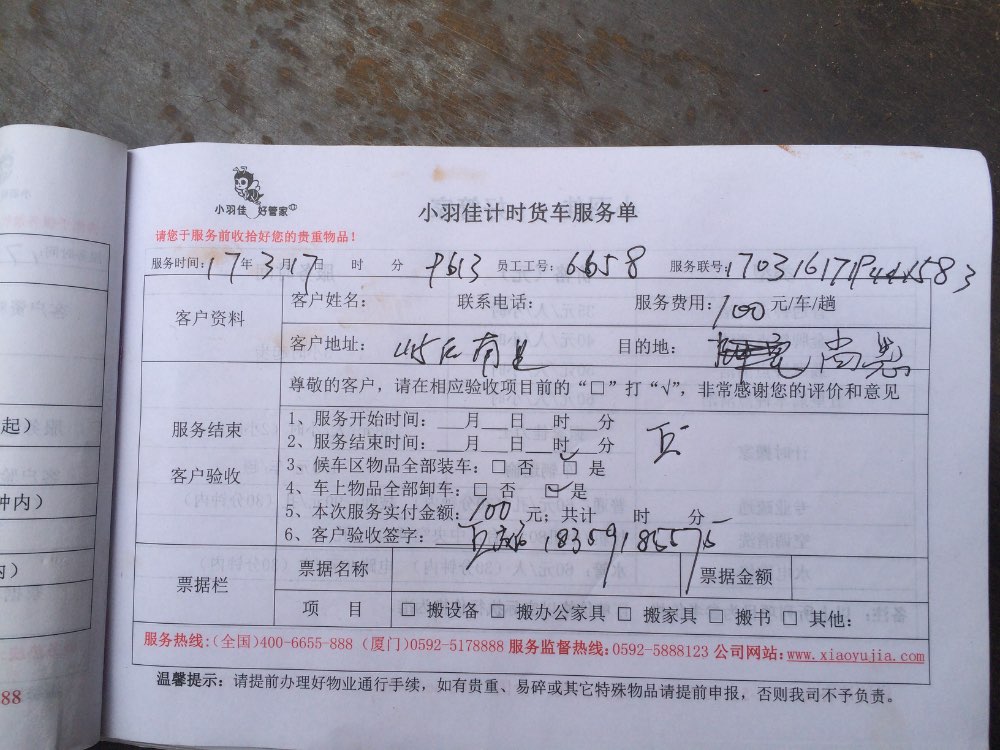 小羽佳 好管家
小羽佳计时货车服务单
请您于服务前收拾好您的贵重物品！
服务时间：17年3月17日 时 分 员工工号：6658 服务联号：
客户资料
客户姓名： 联系电话： 服务费用：100元/车/趟
客户地址： 目的地：
尊敬的客户，请在相应验收项目前的“□”打“√”，非常感谢您的评价和意见
服务结束
客户验收
1、服务开始时间：___月___日___时___分
2、服务结束时间：___月___日___时___分
3、候车区物品全部装车：□ 否 ☑ 是
4、车上物品全部卸车：□ 否 ☑ 是
5、本次服务实付金额：100元；共计 时 分
6、客户验收签字：
票据栏
票据名称 票据金额
项 目 □ 搬设备 □ 搬办公家具 □ 搬家具 □ 搬书 □ 其他：
服务热线:(全国)400-6655-888 (厦门)0592-5178888 服务监督热线:0592-5888123 公司网站:www.xiaoyujia.com
温馨提示：请提前办理好物业通行手续，如有贵重、易碎或其它特殊物品请提前申报，否则我司不予负责。
起）
钟内）
内）
88